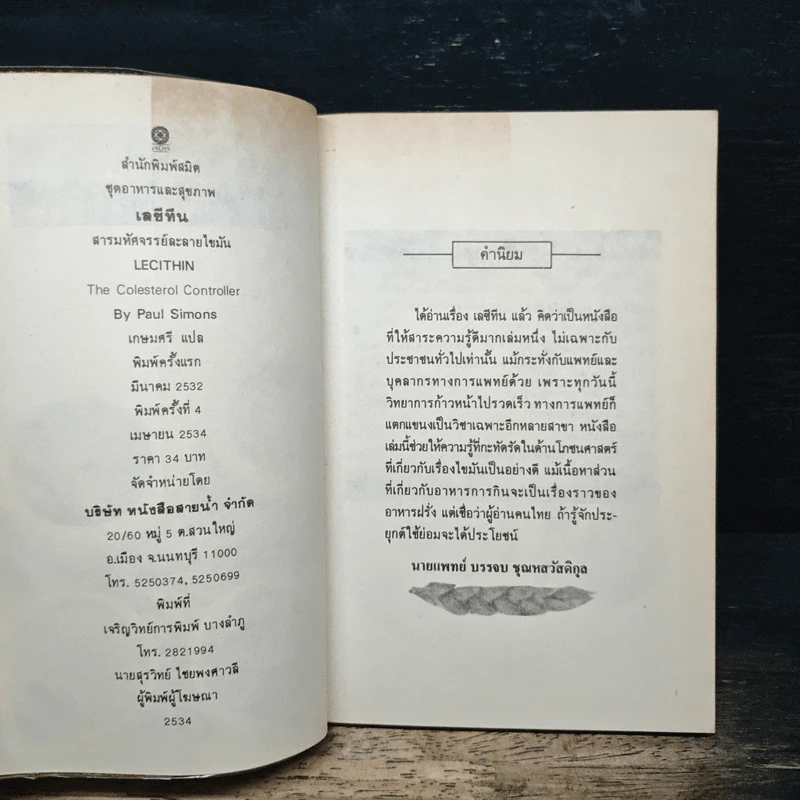 สำนักพิมพ์สมิต
ชุดอาหารและสุขภาพ
เลซีทีน
สารมหัศจรรย์ละลายไขมัน
LECITHIN
The Colesterol Controller
By Paul Simons
เกษมศรี แปล
พิมพ์ครั้งแรก
มีนาคม 2532
พิมพ์ครั้งที่ 4
เมษายน 2534
ราคา 34 บาท
จัดจำหน่ายโดย
บริษัท หนังสือสายน้ำ จำกัด
20/60 หมู่ 5 ต.สวนใหญ่
อ.เมือง จ.นนทบุรี 11000
โทร. 5250374, 5250699
พิมพ์ที่
เจริญวิทย์การพิมพ์ บางลำภู
โทร. 2821994
นายสุรวิทย์ ไชยพงศาวลี
ผู้พิมพ์ผู้โฆษณา
2534
คำนิยม
ได้อ่านเรื่อง เลซีทีน แล้ว คิดว่าเป็นหนังสือ
ที่ให้สาระความรู้ดีมากเล่มหนึ่ง ไม่เฉพาะกับ
ประชาชนทั่วไปเท่านั้น แม้กระทั่งกับแพทย์และ
บุคลากรทางการแพทย์ด้วย เพราะทุกวันนี้
วิทยาการก้าวหน้าไปรวดเร็ว ทางการแพทย์ก็
แตกแขนงเป็นวิชาเฉพาะอีกหลายสาขา หนังสือ
เล่มนี้ช่วยให้ความรู้ที่กะทัดรัดในด้านโภชนศาสตร์
ที่เกี่ยวกับเรื่องไขมันเป็นอย่างดี แม้เนื้อหาส่วน
ที่เกี่ยวกับอาหารการกินจะเป็นเรื่องราวของ
อาหารฝรั่ง แต่เชื่อว่าผู้อ่านคนไทย ถ้ารู้จักประ-
ยุกต์ใช้ย่อมจะได้ประโยชน์
นายแพทย์ บรรจบ ชุณหสวัสดิกุล